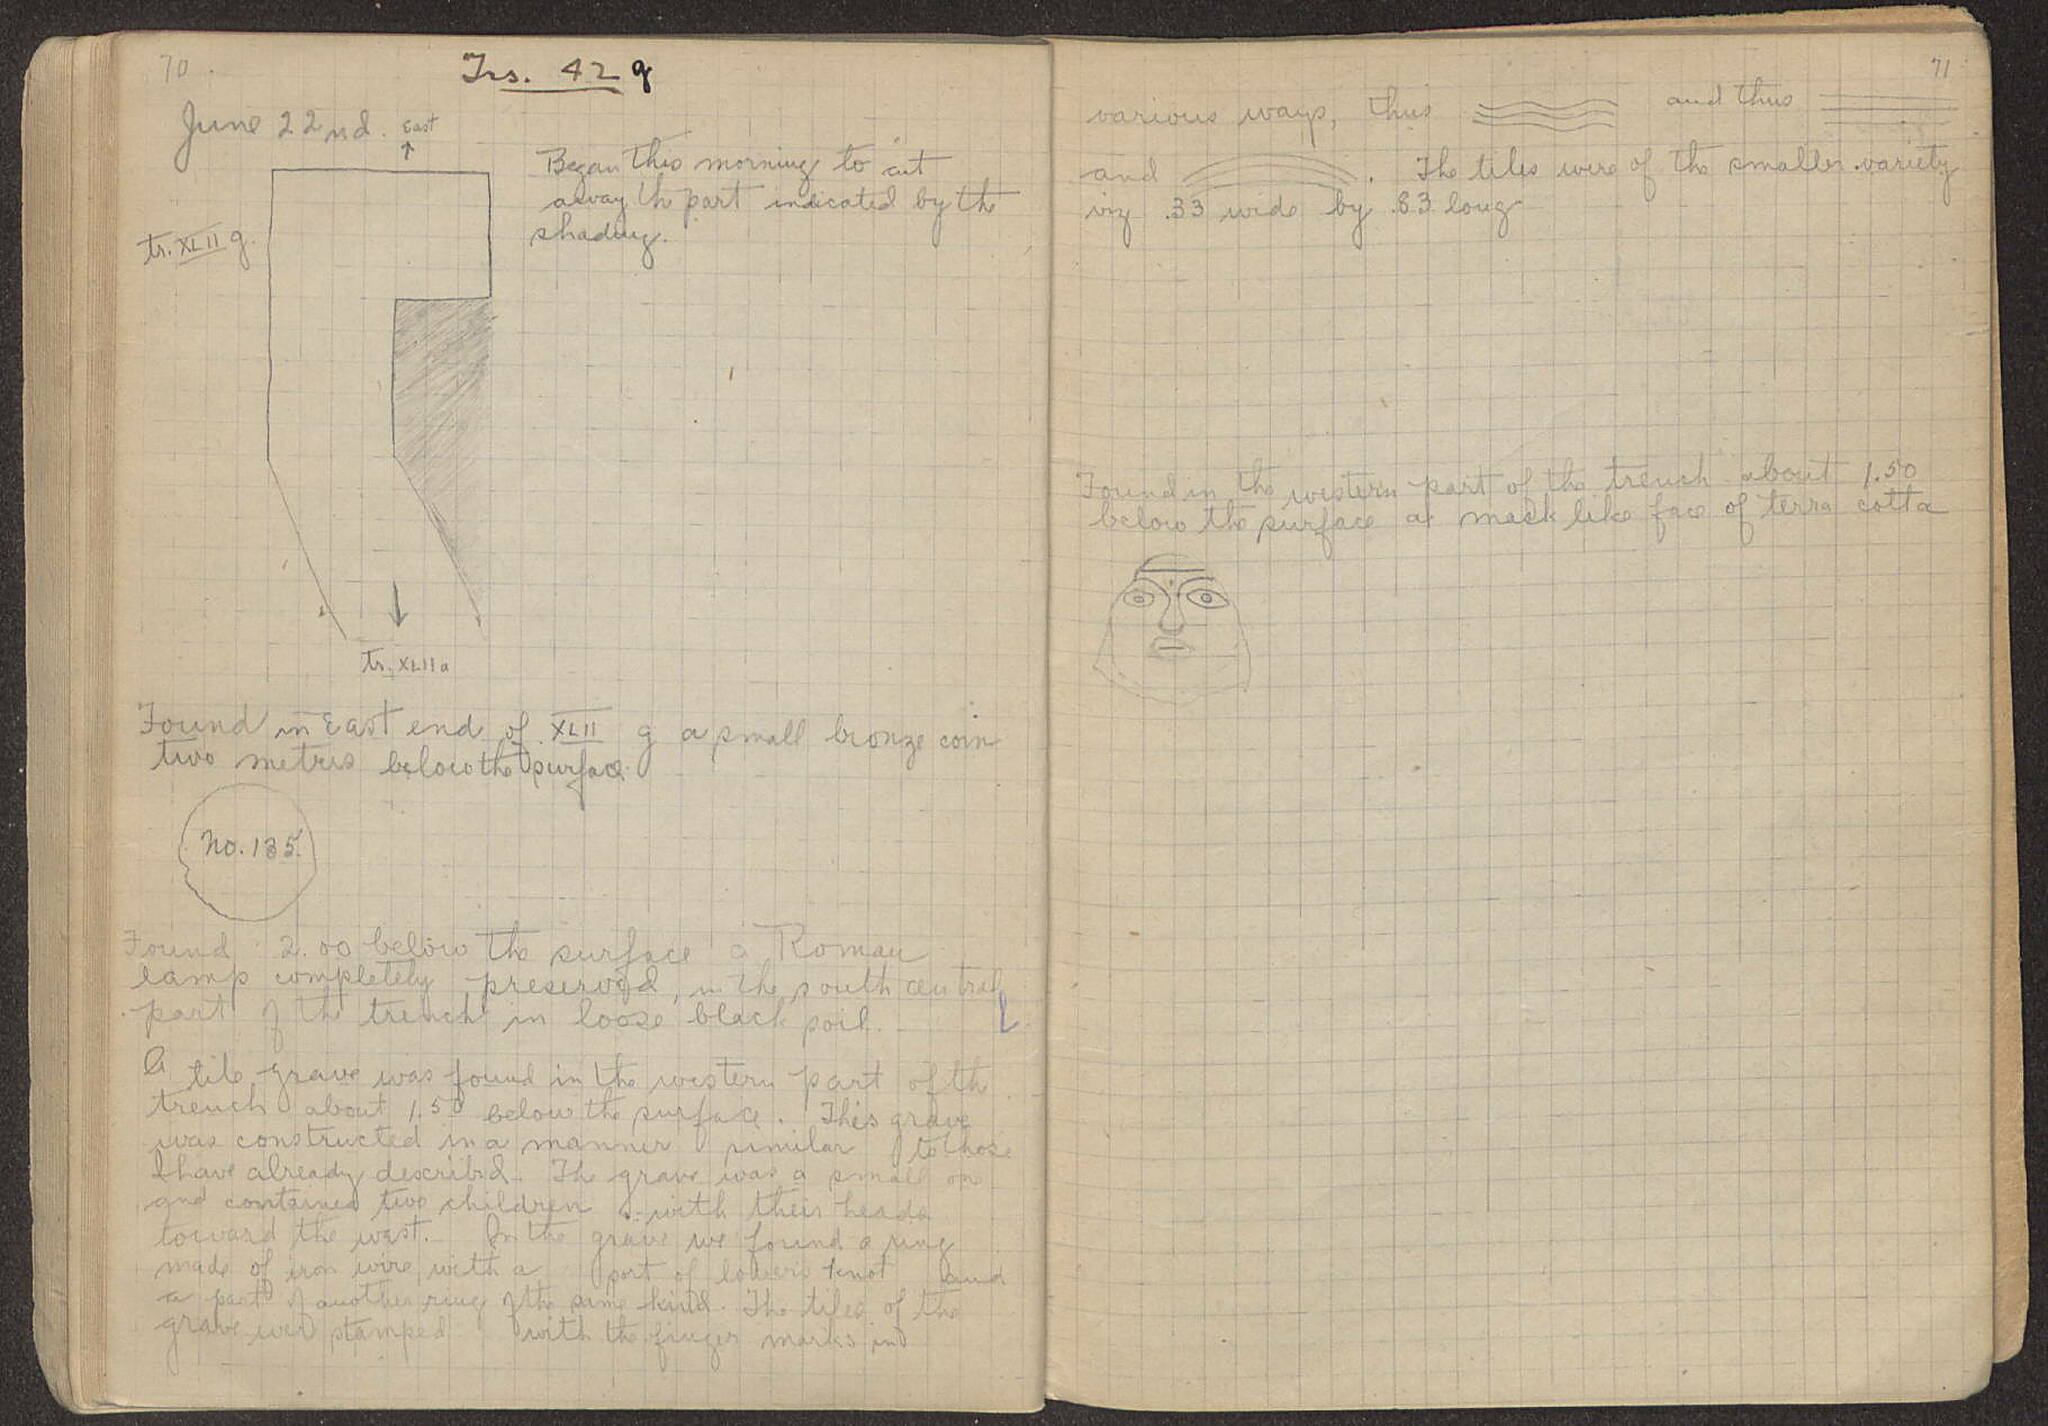 70
Trs. 42 g
June 22nd.
East
Began this morning to cut
away th part indicated by the
shading.
tr. XLII g.
tr. XLII a
Found in East end of XLII g a small bronze coin
two metres below the surface.
No. 135.
Found 2.00 below the surface a Roman
lamp completely preserved, in the south central
part of the trench in loose black soil.
A tile grave was found in the western part of th
trench about 1.50 below the surface. This grave
was constructed in a manner similar to those
I have already described. The grave was a small one
and contained two children with their heads
toward the west. In the grave we found a ring
made of iron wire with a sort of lovers knot and
a part of another ring of the same kind. The tiles of the
grave were stamped with the finger marks in
71
various ways, thus and thus
and . The tiles were of the smaller variety
viz .33 wide by .83 long
Found in the western part of the trench about 1.50
below the surface a mask like face of terra cotta